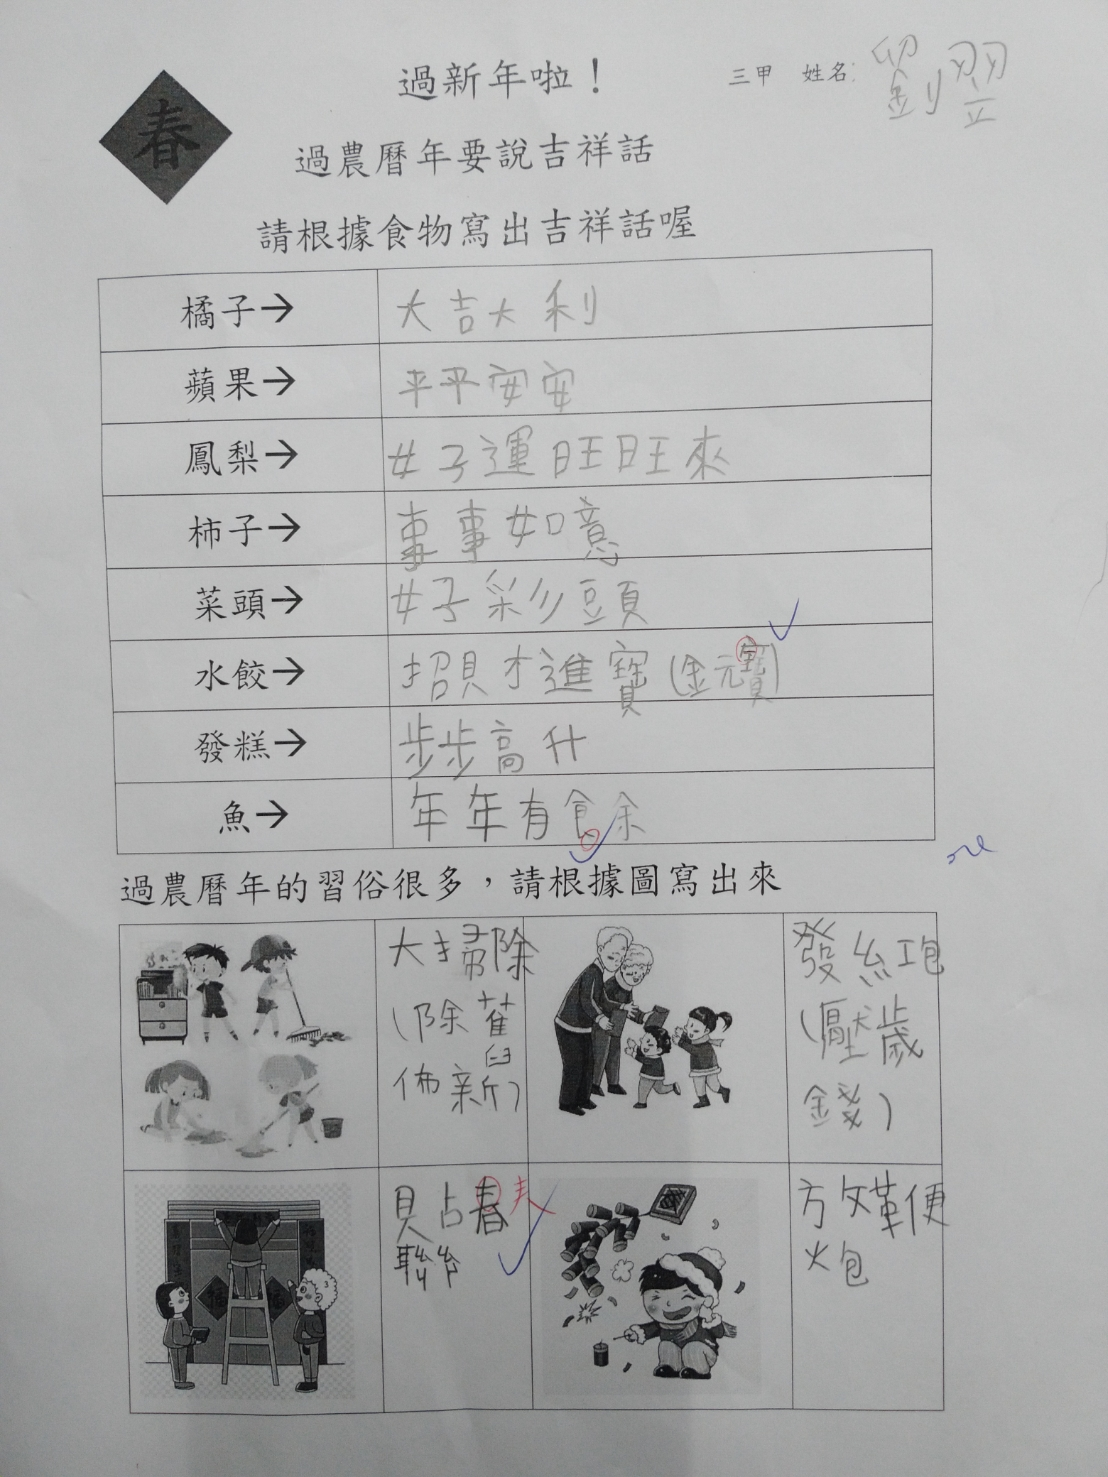 春
過新年啦！
三甲 姓名: 劉翌
過農曆年要說吉祥話
請根據食物寫出吉祥話喔
橘子→ 大吉大利
蘋果→ 平平安安
鳳梨→ 好運旺旺來
柿子→ 事事如意
菜頭→ 好彩頭
水餃→ 招財進寶(金元寶)
發糕→ 步步高升
魚→ 年年有餘
過農曆年的習俗很多，請根據圖寫出來
大掃除
(除舊
佈新)
發紅包
(壓歲
錢)
貼春
聯
放鞭
炮